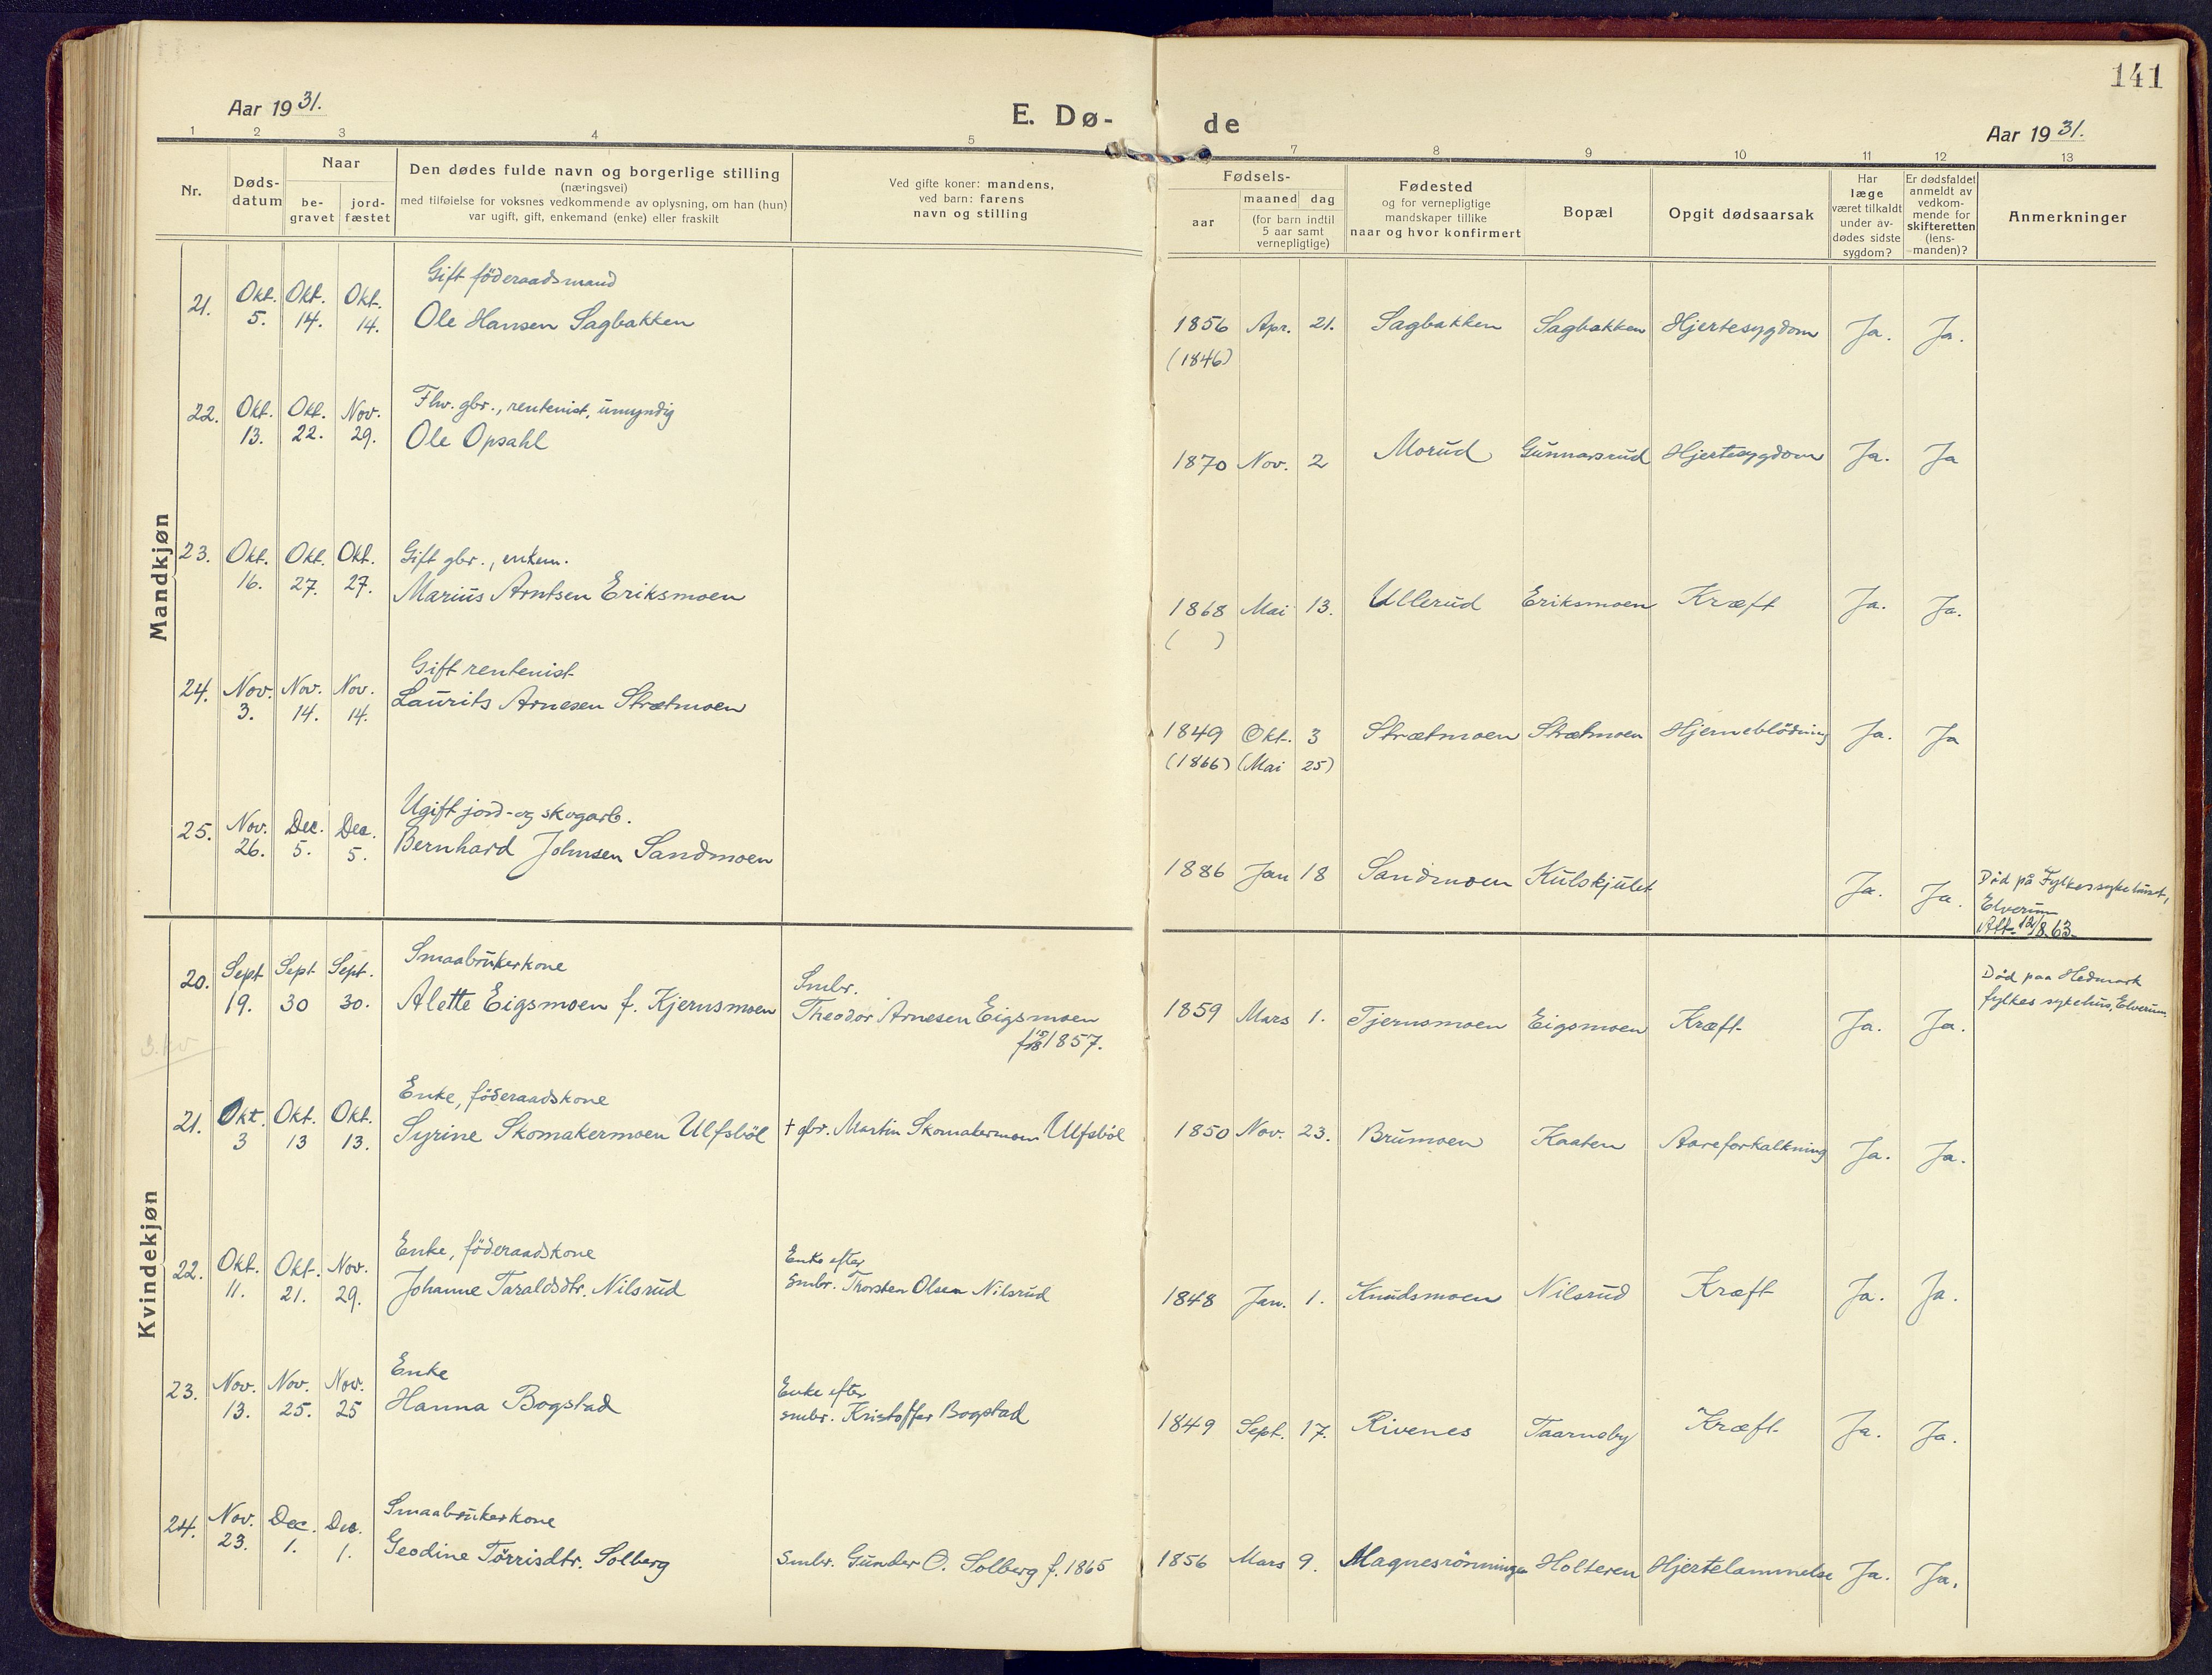 141
Aar 1931.
E. Dø-
de
Aar 1931.
1 2 3 4 5 7 8 9 10 11 12 13
Nr.
Døds-
datum
Naar
be-
gravet
jord-
fæstet
Den dødes fulde navn og borgerlige stilling
(næringsvei)
med tilføielse for voksnes vedkommende av oplysning, om han (hun)
var ugift, gift, enkemand (enke) eller fraskilt
Ved gifte koner: mandens,
ved barn: farens
navn og stilling
Fødsels-
aar
maaned dag
(for barn indtil
5 aar samt
vernepligtige)
Fødested
og for vernepligtige
mandskaper tillike
naar og hvor konfirmert
Bopæl
Opgit dødsaarsak
Har
læge
været tilkaldt
under av-
dødes sidste
sygdom?
Er dødsfaldet
anmeldt av
vedkom-
mende for
skifteretten
(lens-
manden)?
Anmerkninger
Mandkjøn
Gift föderaadsmand
21. Okt. 5. Okt. 14. Okt. 14. Ole Hansen Sagbakken 1856 Apr. 21. Sagbakken Sagbakken Hjertesygdom Ja. Ja.
(1846)
Fhv. gbr., rentenist, umyndig
22. Okt. 13. Okt. 22. Nov. 29. Ole Opsahl 1870 Nov. 2 Morud Gunnarsrud Hjertesygdom Ja. Ja
Gift gbr., enkem.
23. Okt. 16. Okt. 27. Okt. 27. Marius Arntsen Eriksmoen 1868 Mai 13. Ullerud Eriksmoen Kræft Ja. Ja.
( )
Gift rentenist
24. Nov. 3. Nov. 14. Nov. 14. Laurits Arnesen Strætmoen 1849 Okt. 3 Strætmoen Strætmoen Hjerneblödning Ja. Ja
(1866) (Mai 25)
Ugift jord- og skogarb.
25. Nov. 26. Dec. 5. Dec. 5. Bernhard Johnsen Sandmoen 1886 Jan 18 Sandmoen Kulskjulet Ja. Ja.
Död på Fylkessykehuset,
Elverum
Att. 12/8.63.
Kvindekjøn
Smaabrukerkone
20. Sept 19. Sept 30 Sept. 30. Alette Eigsmoen f. Kjernsmoen
Smbr.
Theodor Arnesen Eigsmoen
1857.
1859 Mars 1. Tjernsmoen Eigsmoen Kræft Ja. Ja.
Död paa Hedmark
fylkes sykehus, Elverum.
3. kv
Enke, föderaadskone
21. Okt. 3 Okt. 13 Okt. 13. Syrine Skomakermoen Ulfsböl † gbr. Martin Skomakermoen Ulfsböl 1850 Nov. 23. Brumoen Kaaten Aareforkalkning Ja. Ja.
Enke, föderaadskone
22. Okt. 11. Okt. 21. Nov. 29. Johanne Taraldsdtr. Nilsrud
Enke efter
smbr. Thorsten Olsen Nilsrud
1848 Jan. 1. Knudsmoen Nilsrud Kræft Ja. Ja.
Enke
23. Nov. 13. Nov. 25. Nov. 25 Hanna Bogstad
Enke efter
smbr. Kristoffer Bogstad
1849 Sept. 17. Rivenes Taarneby Kræft Ja. Ja.
Smaabrukerkone
24. Nov. 23. Dec. 1. Dec. 1. Geodine Tørrisdtr. Solberg Smbr. Gunder O. Solberg f. 1865 1856 Mars 9. Magnesrönningen Holteren Hjertelammelse Ja. Ja.